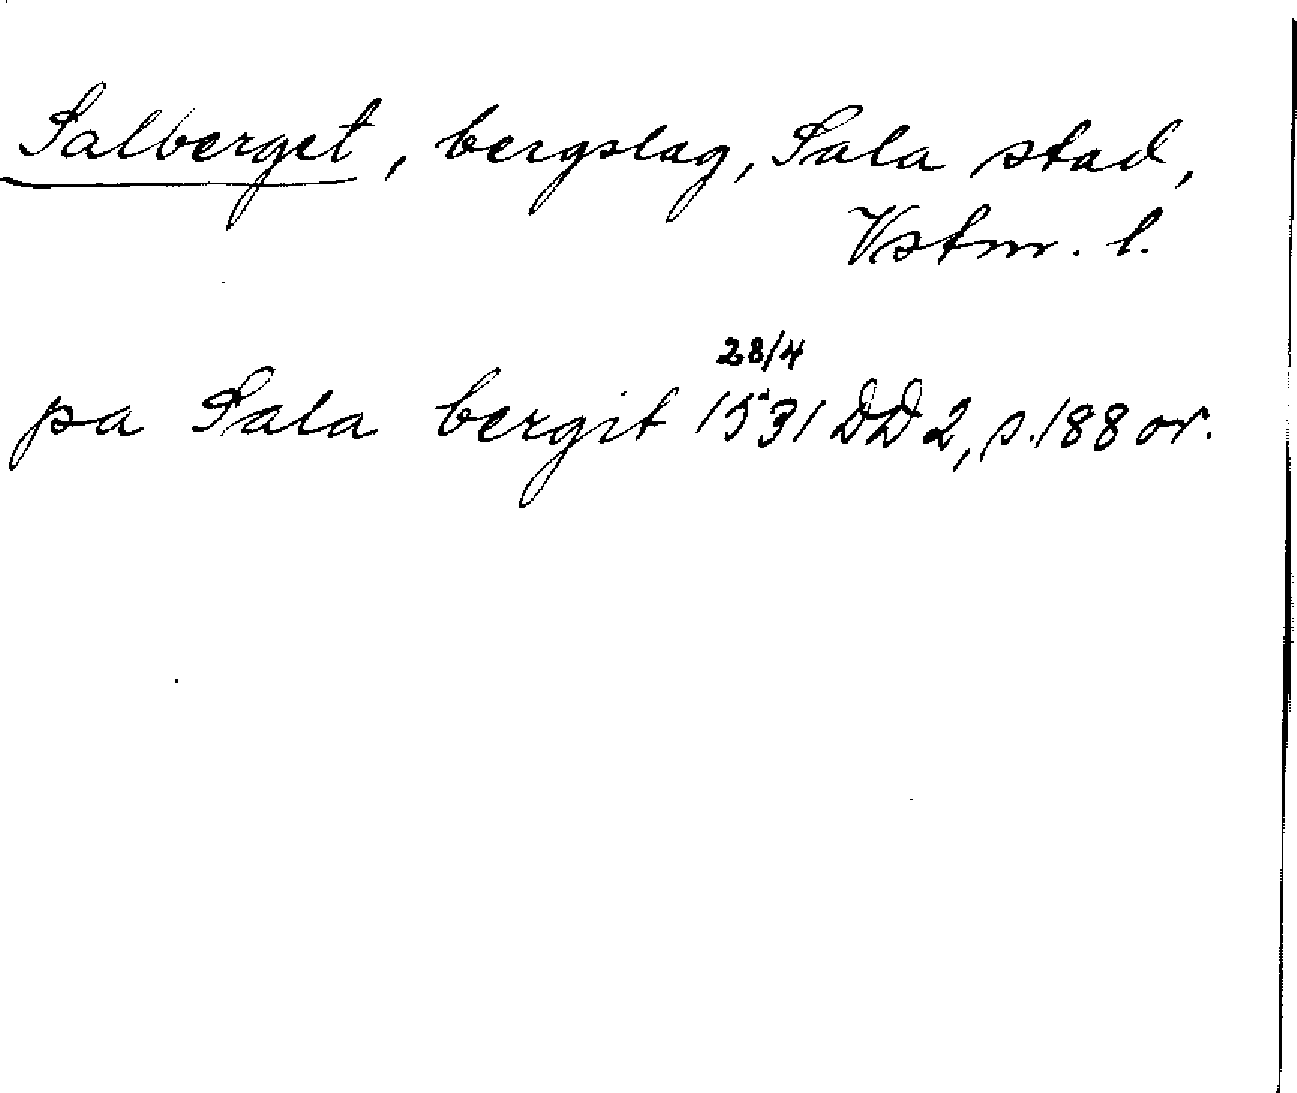 Salberget, bergslag, Sala stad,
Vstm. l.
28/4
pa Sala bergit 1531 DD 2, s. 188 or.